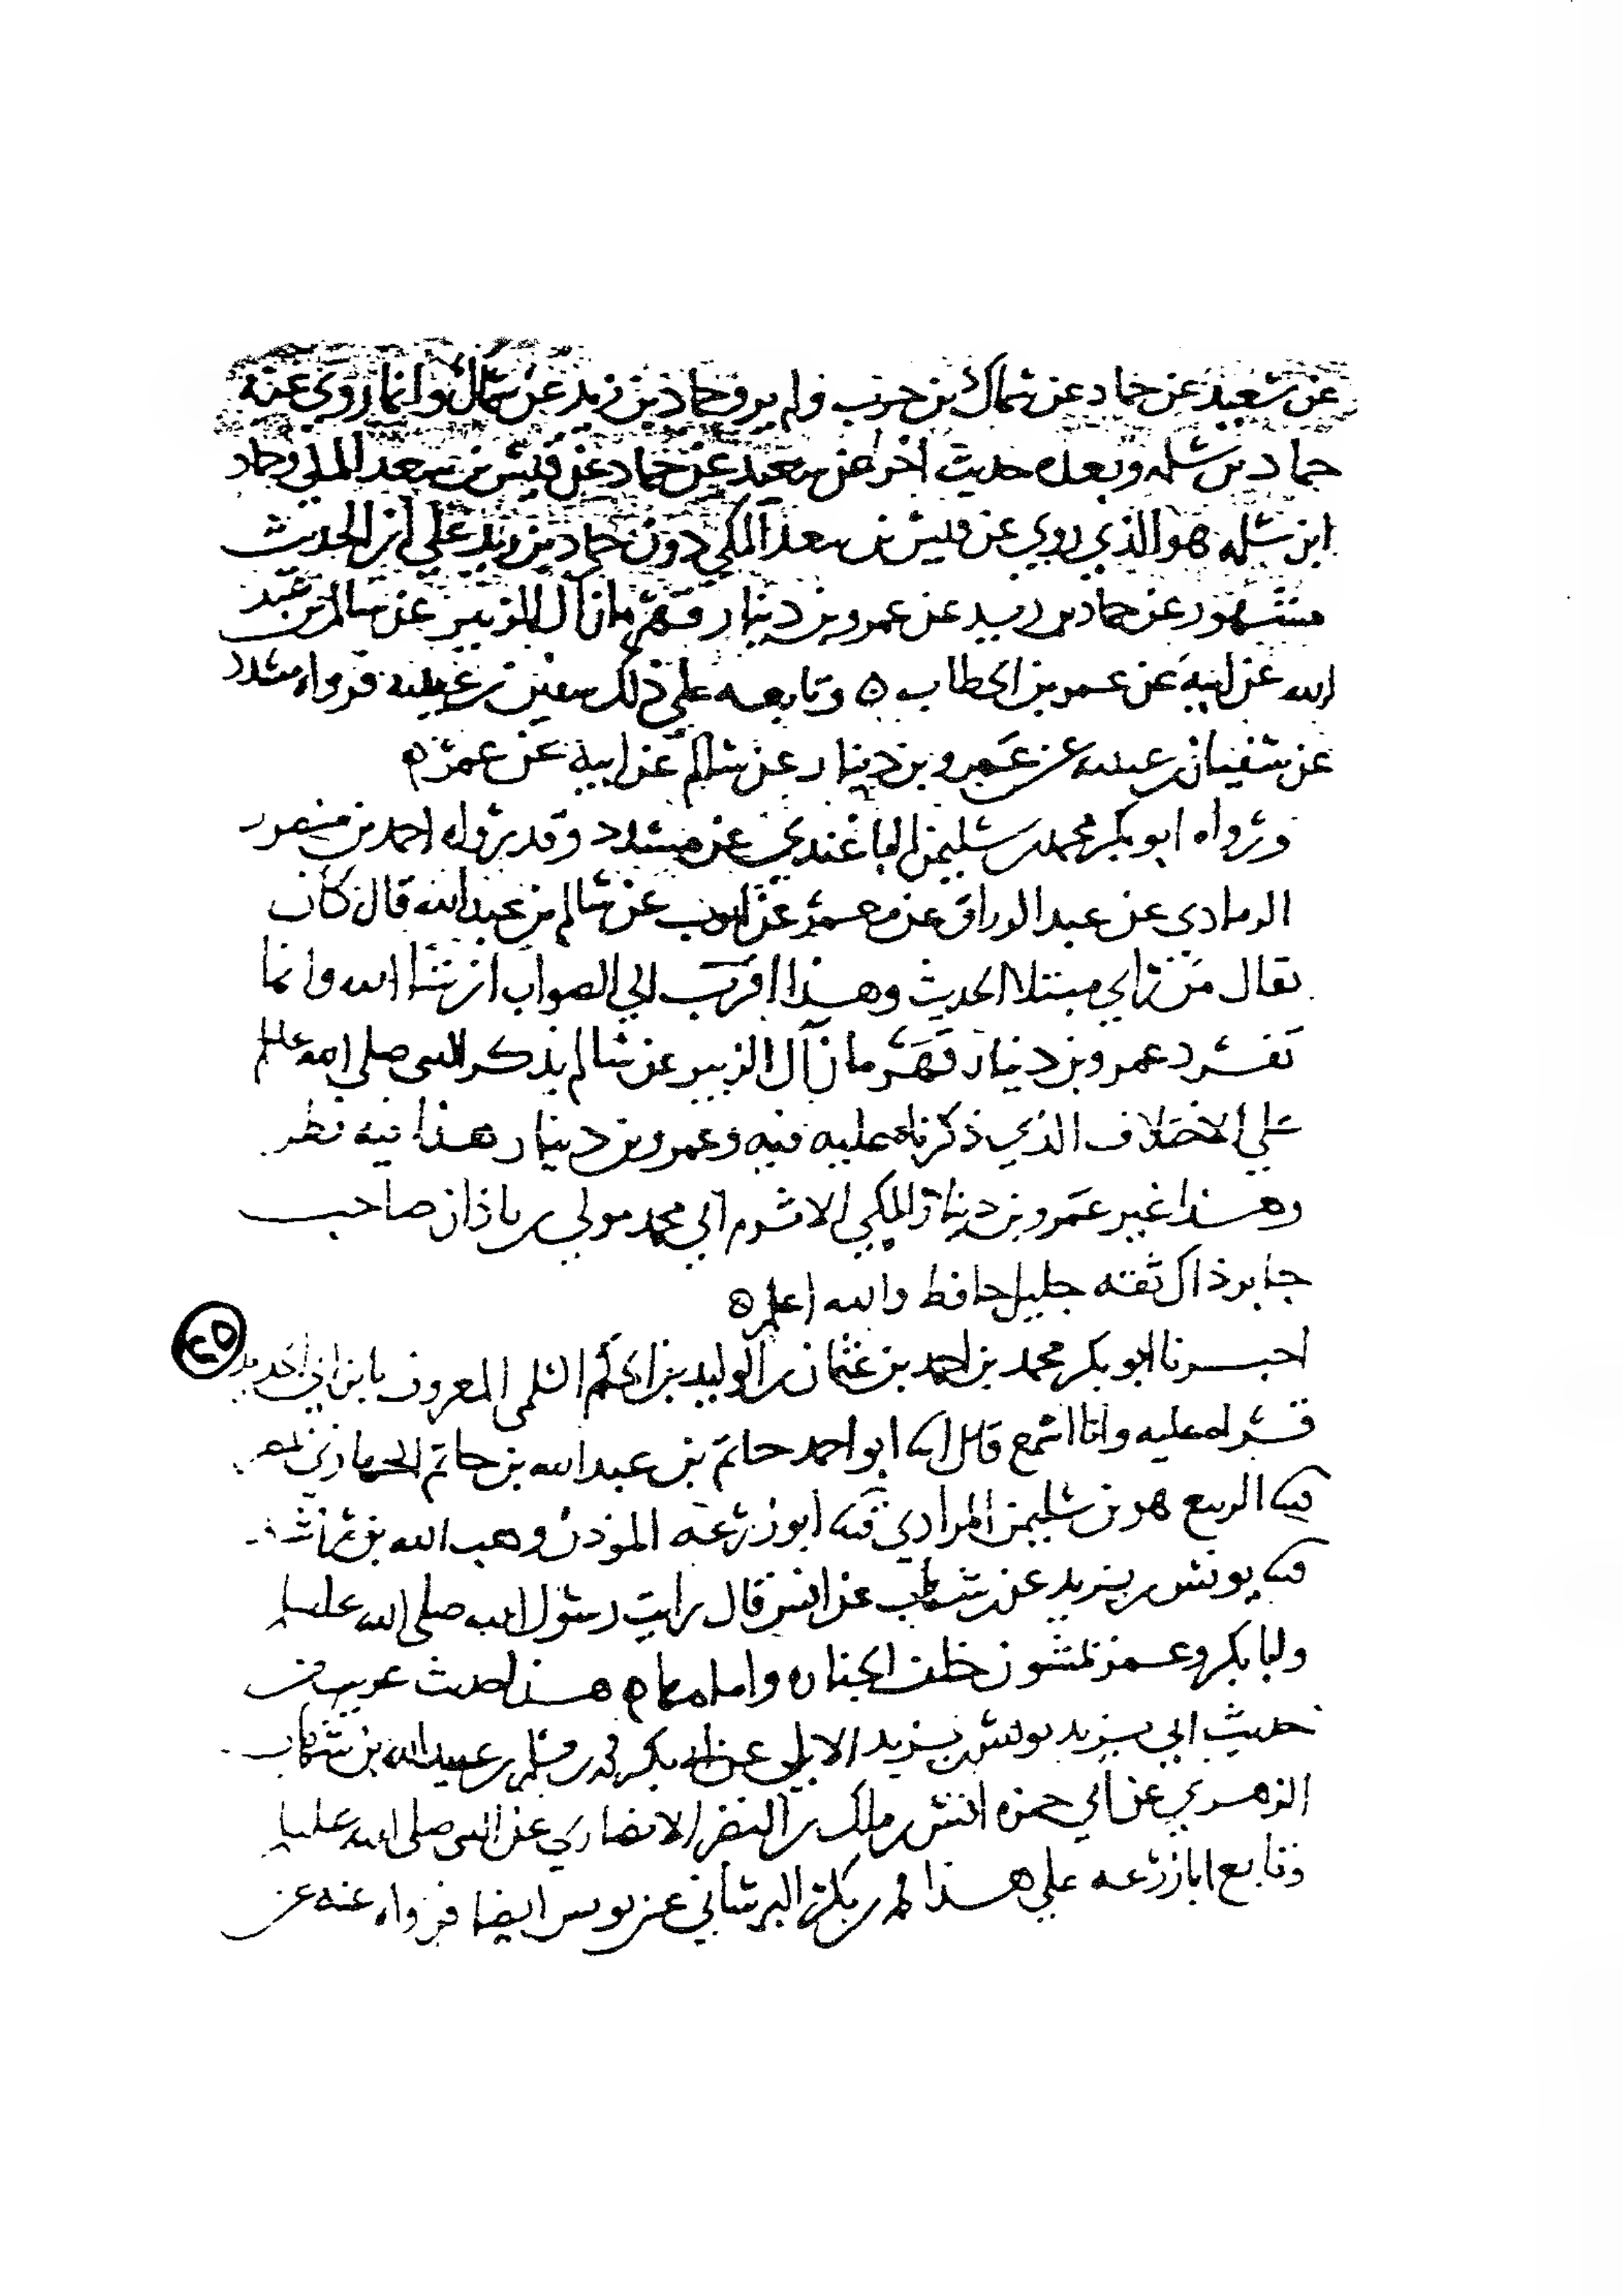 عن سعيد عن حماد عن سماك بن حرب ولم يرو حماد بن زيد عن سماك وانما روي عنه
حماد بن سلمه وبعده حديث اخر عن سعيد عن حماد عن قيس بن سعد المكي وحماد
ابن سلمه هو الذي روي عن قيس بن سعد المكي دون حماد بن زيد علي ان الحديث
مشهور عن حماد بن زيد عن عمرو بن دينار قهرمان آل الزبير عن سالم بن عبد
الله عن ابيه عن عمر بن الخطاب ه وتابعه علي ذلك سفين بن عيينه فرواه مسدد
عن سفيان بن عيينه عن عمرو بن دينار عن سالم عن ابيه عن عمر ه
ورواه ابو بكر محمد بن سليمن الباغندي عن مسدد وقد رواه احمد بن منصور
الرمادي عن عبد الرزاق عن معمر عن ايوب عن سالم بن عبد الله قال كان
يقال من راي مبتلا الحديث وهذا اقرب الي الصواب ان شا الله وانما
تفرد عمرو بن دينار قهرمان آل الزبير عن سالم بذكر النبي صلي الله عليه وسلم
علي الاختلاف الذي ذكرناه عليه فيه وعمرو بن دينار هذا فيه نظر
وهذا غير عمرو بن دينار المكي الاثرم ابي محمد مولي بن باذان صاحب
جابر ذاك ثقه جليل حافظ والله اعلم ه
اخبرنا ابو بكر محمد بن احمد بن عثمان بن الوليد بن الحكم السلمي المعروف بابن ابي الحديد
قراه عليه وانا اسمع قال ابنا ابو احمد حاتم بن عبد الله بن حاتم الجهازي بمصر
ثنا الربيع هو بن سليمن المرادي ثنا ابو زرعه الموذن وهب الله بن راشد
ثنا يونس بن يزيد عن بن شهاب عن انس قال رايت رسول الله صلي الله عليه وسلم
وابا بكر وعمر يمشون خلف الجنازه وامامها ه هذا حديث غريب من
حديث ابي يزيد يونس بن يزيد الايلي عن ابي بكر محمد بن مسلم بن عبيد الله بن شهاب
الزهري عن ابي حمزه انس بن ملك بن النضر الانصاري عن النبي صلي الله عليه وسلم
وتابع ابا زرعه علي هذا محمد بن بكر البرساني عن يونس ايضا فرواه عنه عن